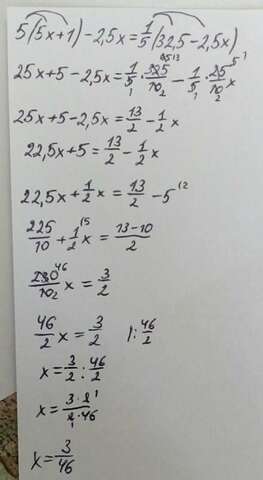 5(5x+1)-2,5x=1/5(32,5-2,5x)
25x+5-2,5x=1/5·325/10-1/5·25/10x
25x+5-2,5x=13/2-1/2x
22,5x+5=13/2-1/2x
22,5x+1/2x=13/2-5
225/10+1/2x=(13-10)/2
230/10x=3/2
46/2x=3/2 |:46/2
x=3/2:46/2
x=(3·2)/(2·46)
x=3/46